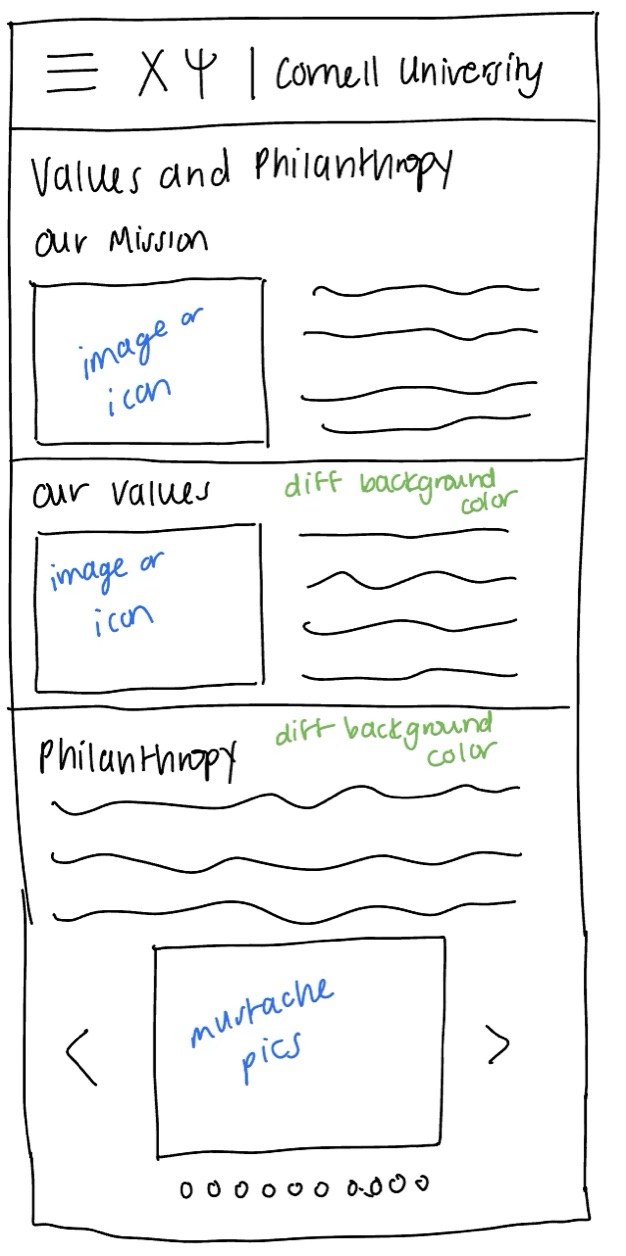 Χ Ψ | Cornell University
Values and Philanthropy
our Mission
image or
icon
our values
diff background
color
image or
icon
Philanthropy
diff background
color
mustache
pics